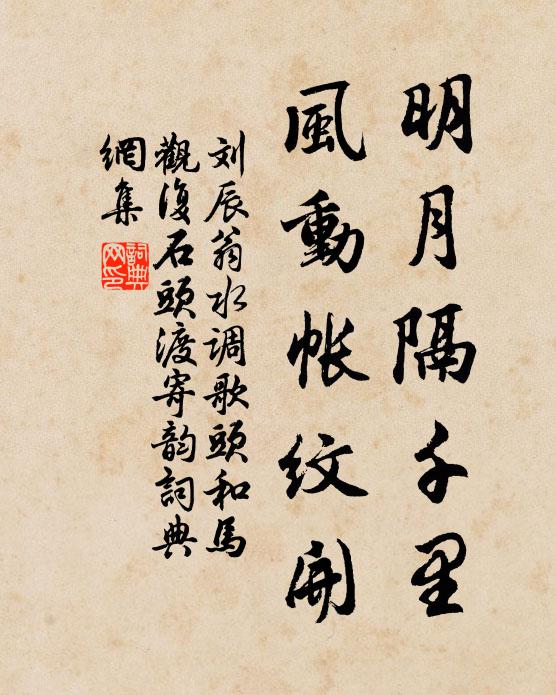 明月隔千里
風動帐纹開
刘辰翁水调歌頭和馬
觀復石頭渡寄韵詞典
網集
詞典
网印